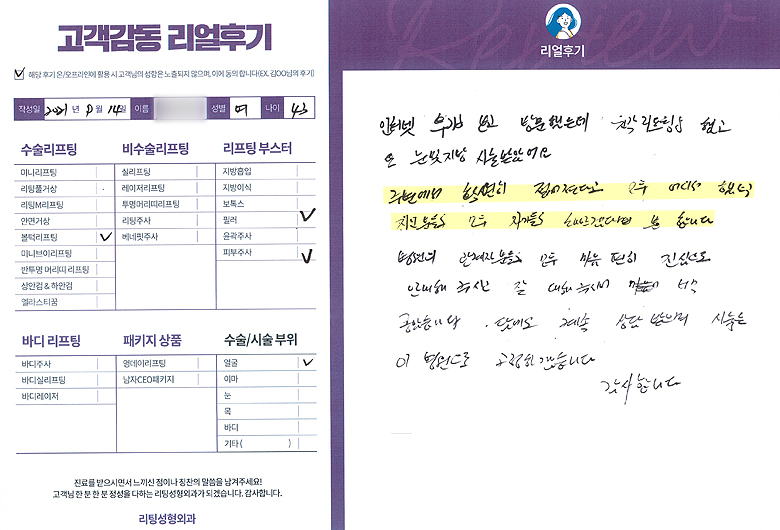 고객감동 리얼후기
해당 후기 온/오프라인에 활용 시 고객님의 성함은 노출되지 않으며, 이에 동의 합니다(EX. 김OO님의 후기)
작성일 2021년 9월 14일 이름 성별 여 나이 43
수술리프팅
미니리프팅
리팅풀거상
리팅M리프팅
안면거상
볼턱리프팅
미니브이리프팅
반투명 머리띠 리프팅
상안검 & 하안검
엘라스티꿈
비수술리프팅
실리프팅
레이저리프팅
투명머리띠리프팅
리팅주사
베네핏주사
리프팅 부스터
지방흡입
지방이식
보톡스
필러
윤곽주사
피부주사
바디 리프팅
바디주사
바디실리프팅
바디레이저
패키지 상품
영데이리프팅
남자CEO패키지
수술/시술 부위
얼굴
이마
눈
목
바디
기타 ( )
진료를 받으시면서 느끼신 점이나 칭찬의 말씀을 남겨주세요!
고객님 한 분 한 분 정성을 다하는 리팅성형외과가 되겠습니다. 감사합니다.
리팅성형외과
Review
리얼후기
인터넷 후기 보고 방문했는데 했고
눈밑지방 시술받았어요
주변에서 확연히 젊어졌다고 모두
지인분들 모두 합니다
병원의 관계자분들 모두 마음 편히 진심으로
주시고 잘 대해 주셔서
좋았습니다. 다음에도 계속 상담 받으며 시술은
이 병원으로 고정하겠습니다
감사합니다